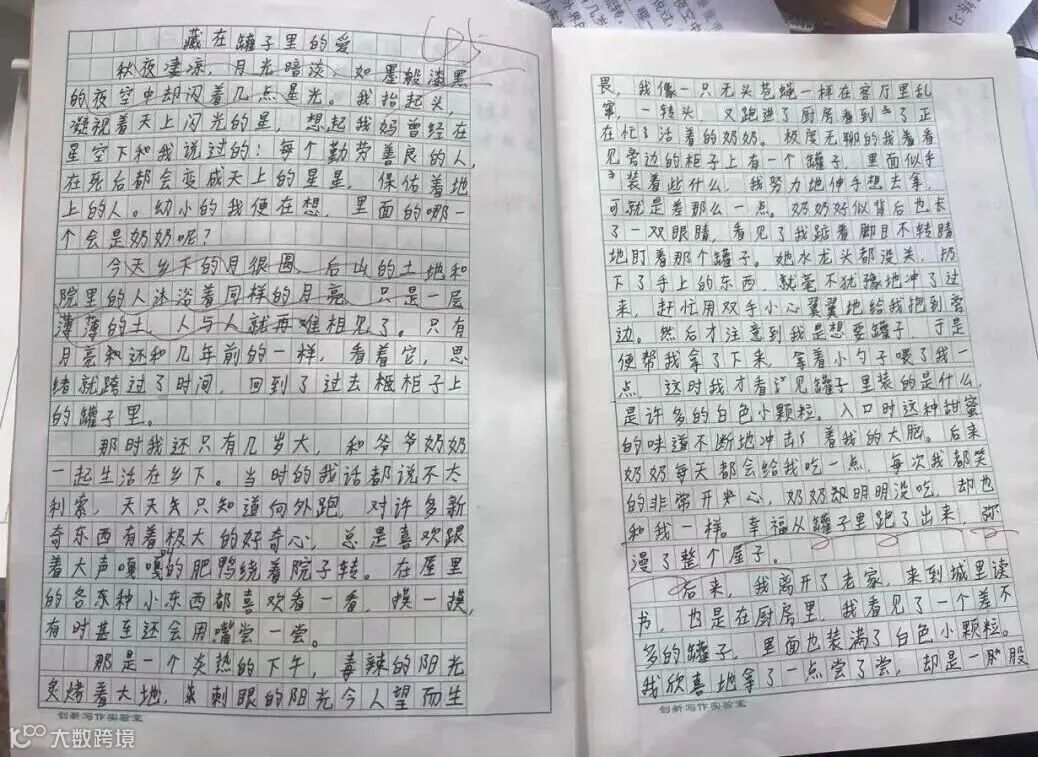 藏在罐子里的爱
秋夜凄凉，月光暗淡，如墨般漆黑
的夜空中却闪着几点星光。我抬起头，
凝视着天上闪光的星，想起我妈曾经在
星空下和我说过的：每个勤劳善良的人，
在死后都会变成天上的星星，保佑着地
上的人。幼小的我便在想，里面的哪一
个会是奶奶呢？
今天乡下的月很圆，后山的土地和
院里的人沐浴着同样的月亮，只是一层
薄薄的土，人与人就再难相见了。只有
月亮和还和几年前的一样，看着它，思
绪就跨过了时间，回到了过去柜子上
的罐子里。
那时我还只有几岁大，和爷爷奶奶
一起生活在乡下。当时的我话都说不大
利索，天天只知道向外跑，对许多新
奇东西有着极大的好奇心，总是喜欢跟
着大声嘎嘎的肥鸭绕着院子转。在屋里
的各种小东西都喜欢看一看，摸一摸，
有时甚至还会用嘴尝一尝。
那是一个炎热的下午，毒辣的阳光
炙烤着大地，刺眼的阳光令人望而生
创新写作实验室
畏，我像一只无头苍蝇一样在客厅里乱
窜，一转头，又跑进了厨房看到了正
在忙活着的奶奶。极度无聊的我看着
见旁边的柜子上有一个罐子，里面似乎
装着些什么，我努力地伸手想去拿，
可就是差那么一点。奶奶好似背后也长
了一双眼睛，看见了我踮着脚目不转睛
地盯着那个罐子。她水龙头都没关，扔
下了手上的东西，就毫不犹豫地冲了过
来，赶忙用双手小心翼翼地给我抱到旁
边。然后才注意到我是想要罐子，于是
便帮我拿了下来，拿着小勺子喂了我一
点，这时我才看见罐子里装的是什么，
是许多的白色小颗粒。入口时这种甜蜜
的味道不断地冲击着我的大脑。后来
奶奶每天都会给我吃一点，每次我都笑
的非常开心，奶奶明明没吃，却也
和我一样。幸福从罐子里跑了出来，弥
漫了整个屋子。
后来，我离开了老家，来到城里读
书，也是在厨房里，我看见了一个差不
多的罐子，里面也装满了白色小颗粒。
我欣喜地拿了一点尝了尝，却是一股
创新写作实验室
大数跨境